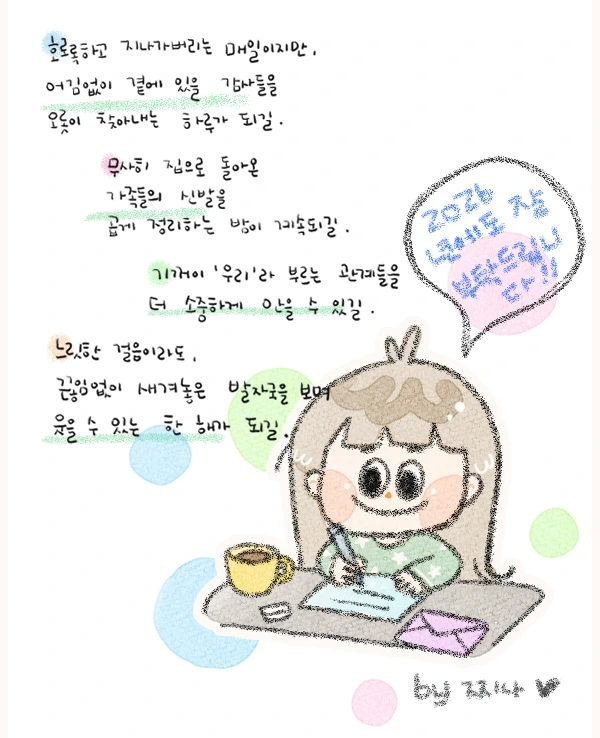 호로록하고 지나가버리는 매일이지만,
어김없이 곁에 있을 감사들을
오롯이 찾아내는 하루가 되길.
무사히 집으로 돌아온
가족들의 신발을
곱게 정리하는 밤이 계속되길.
기꺼이 '우리'라 부르는 관계들을
더 소중하게 안을 수 있길.
느릿한 걸음이라도,
끊임없이 새겨놓은 발자국을 보며
웃을 수 있는 한 해가 되길.
2026
년에도 잘
부탁드립니
다!!
by 찌나